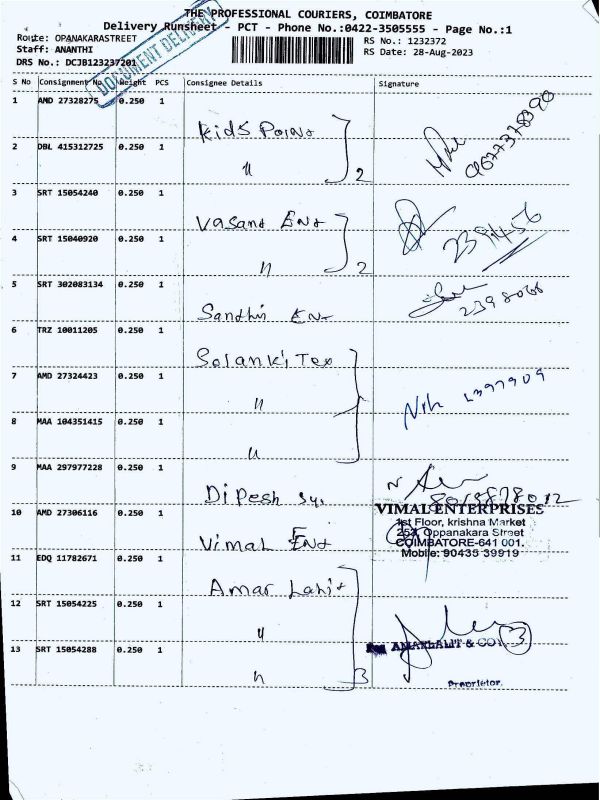 THE PROFESSIONAL COURIERS, COIMBATORE
Delivery Runsheet - PCT - Phone No.:0422-3505555 - Page No.:1
Route: OPANAKARASTREET
RS No.: 1232372
Staff: ANANTHI
RS Date: 28-Aug-2023
DRS No.: DCJB123237201
DOCUMENT DELIVERY
S No Consignment No Weight PCS Consignee Details Signature
1 AMD 27328275 0.250 1 Kids Point
9677378390
2 DBL 415312725 0.250 1 " 2
3 SRT 15054240 0.250 1 Vasant Ent
2391456
4 SRT 15040920 0.250 1 " 2
5 SRT 302083134 0.250 1 Sandhiя Ent
6 TRZ 10011205 0.250 1 Solanki Tex
7 AMD 27324423 0.250 1 "
8 MAA 104351415 0.250 1 "
9 MAA 297977228 0.250 1 Dipesh Sys
10 AMD 27306116 0.250 1 Vimal Ent
VIMAL ENTERPRISES
1st Floor, krishna Market
Oppanakara Street
COIMBATORE-641 001.
Mobile: 90435 39919
11 EDQ 11782671 0.250 1 Amar Lalit
12 SRT 15054225 0.250 1 "
3
AMARLALIT & CO
13 SRT 15054288 0.250 1 " 3
Proprietor.